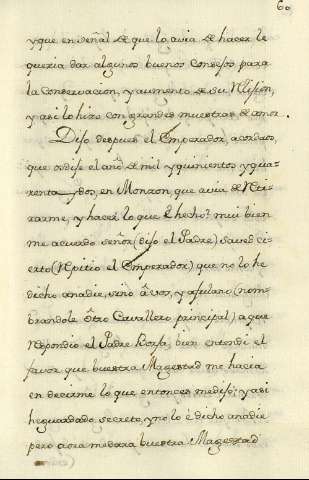 60
yque en señal de que lo avia de hacer le
queria dar algunos buenos consejos para
la Conservacion, y aumento de su Rlijion,
y asi lo hizo con grandes muestras de amor.
Dijo despues el Emperador, acordaos,
que os dije el año de mil y quinientos y qua-
renta y dos, en Monzon, que avia de Reti-
rarme, y hacer lo que é hecho? mui bien
me acuerdo señor (dijo el Padre) saved ci-
erto (Repitio el Emperador) que no lo he
dicho anadie, sino â vos, y afulano (nom-
brandole ôtro Cavallero principal) a que
respondio el Padre Borja, bien entendi el
favor que buestra Magestad me hacia
en decirme lo que entonces medijo? y asi
heguardado secreto, y no lo é dicho anadie
pero aora medara buestra Magestad